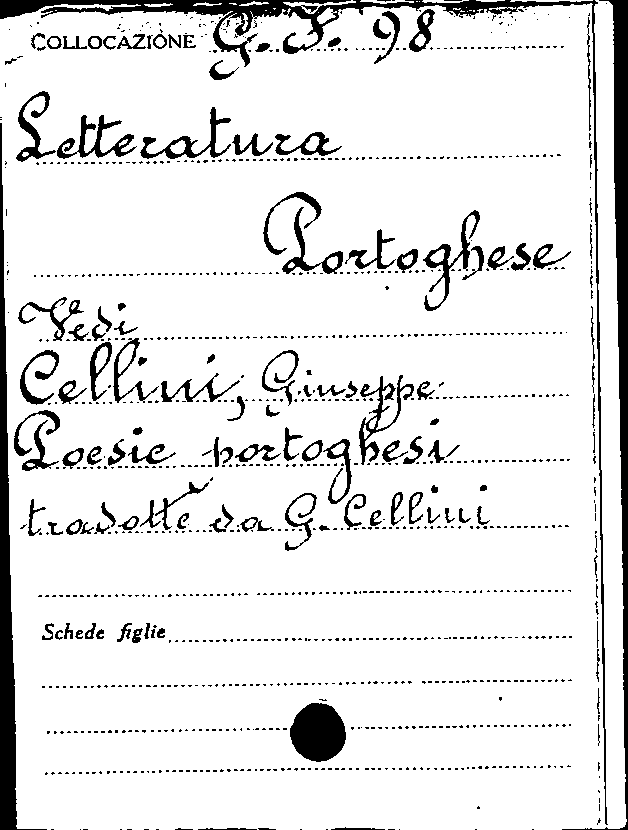 COLLOCAZIONE G. F. 98
Letteratura
Portoghese
Vedi
Cellini, Giuseppe
Poesie portoghesi
tradotte da G. Cellini
Schede figlie